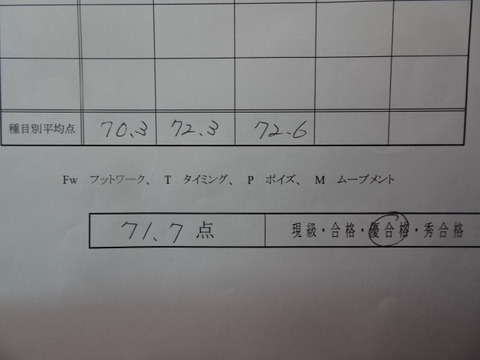 種目別平均点 70.3 72.3 72.6
Fw フットワーク、 T タイミング、 P ポイズ、 M ムーブメント
71.7 点 現級・合格・優合格・秀合格